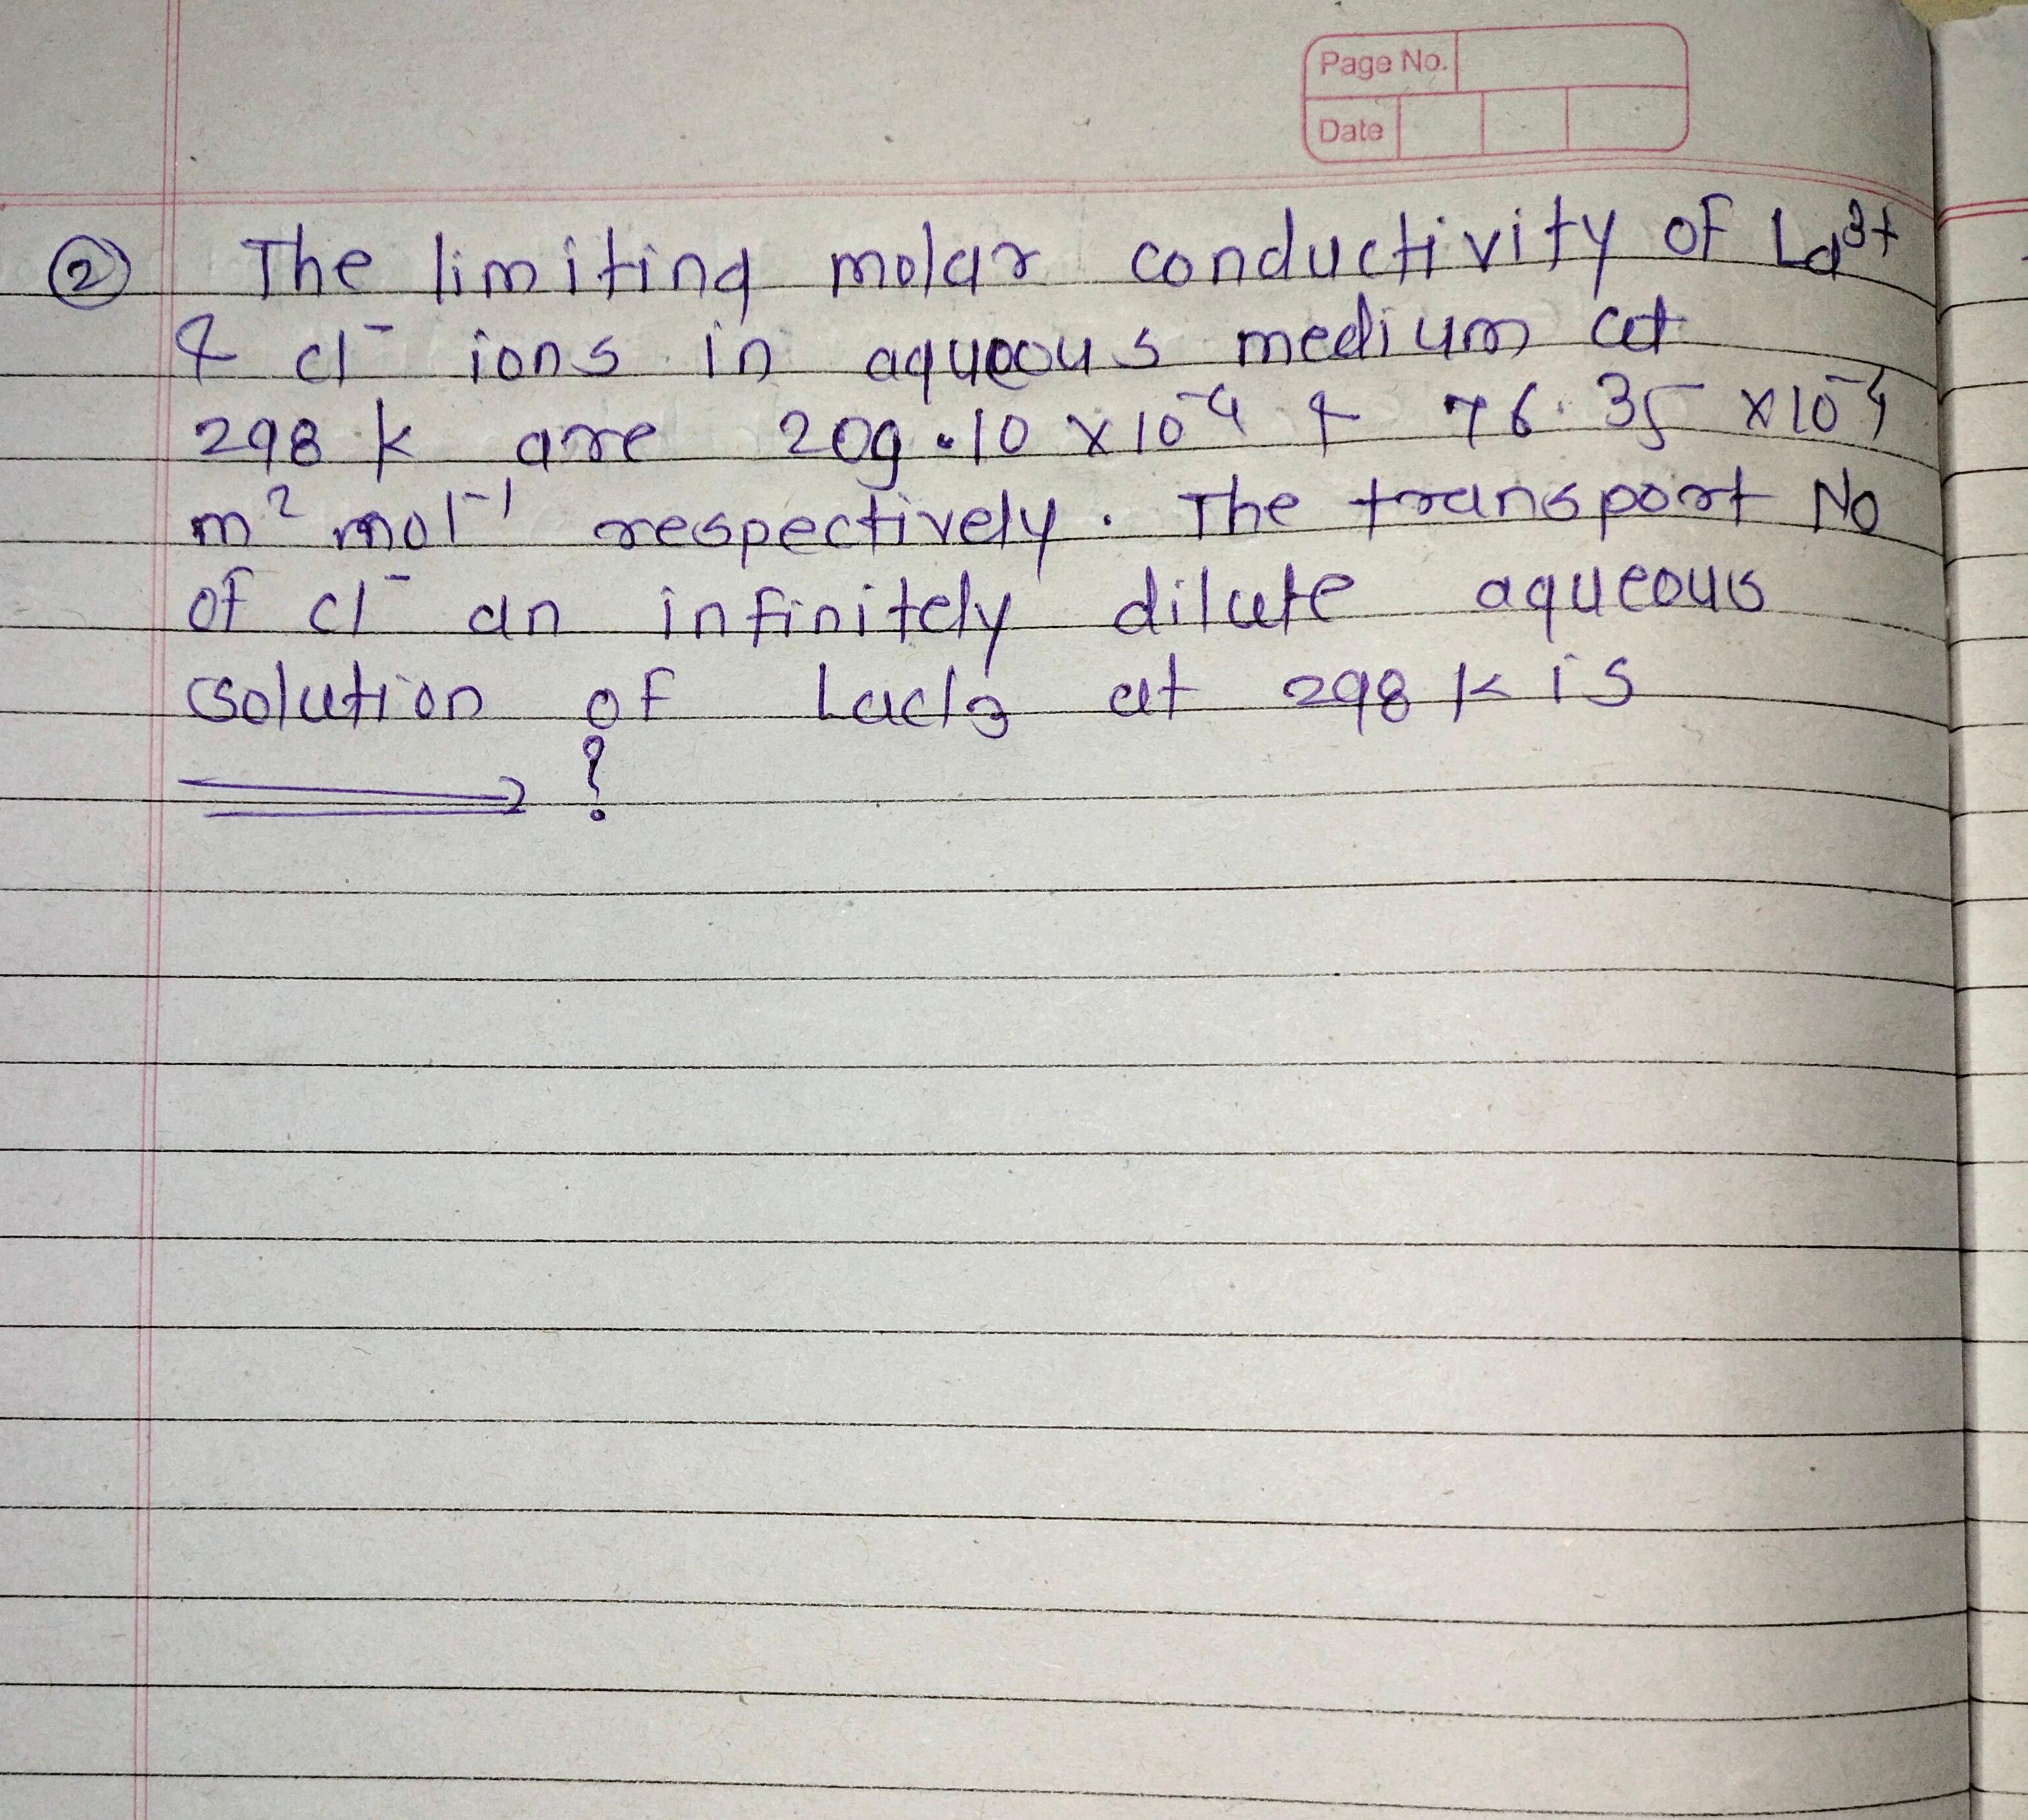 Page No.
Date
② The limiting molar conductivity of La³⁺
& cl⁻ ions in aqueous medium at
298 k are 209.10 x 10⁻⁴ & 76.35 x10⁻⁴
m² mol⁻¹ respectively. The transport No
of cl⁻ an infinitely dilute aqueous
solution of Lacl₃ at 298 k is
⟹ ?